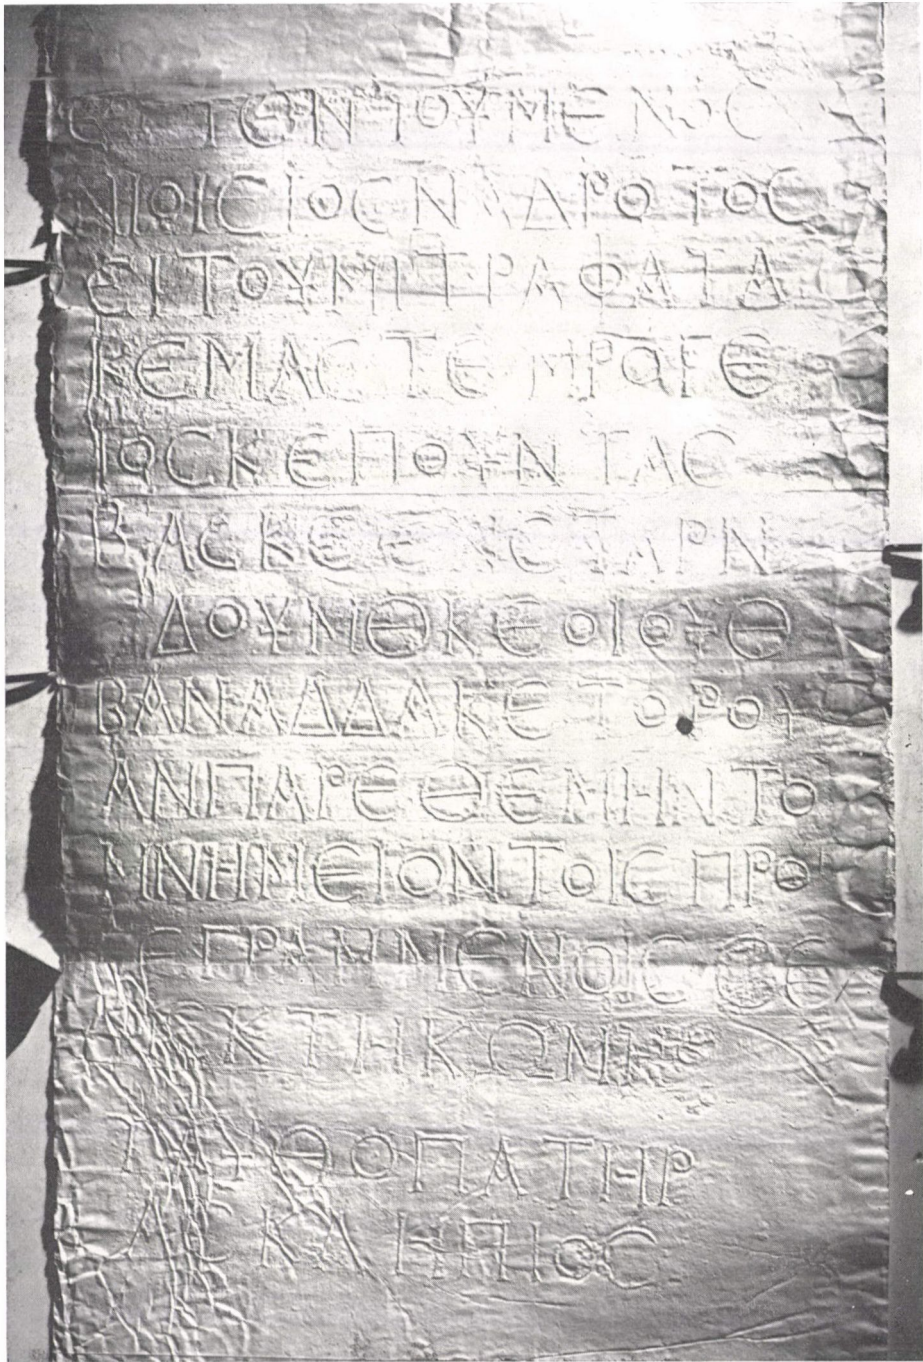 ΤΕΝΤΟΥΜΕΝΟϹ
ΝΙΟΙϹΙΟϹΝΑΔΡΟΤΟϹ
ΕΙΤΟΥΜΙΤΡΑΦΑΤΑ
ΚΕΜΑϹΤΕΜΡΟΓΕ
ΙΟϹΚΕΠΟΥΝΤΑϹ
ΒΑϹΚΕΕΝϹΤΑΡΝ
ΔΟΥΜΘΚΕΟΙΟΥΘ
ΒΑΝΑΔΔΑΚΕΤΟΡΟΥ
ΑΝΠΑΡΕΘΕΜΗΝΤΟ
ΜΝΗΜΕΙΟΝΤΟΙϹΠΡΟ
ΓΕΓΡΑΜΜΕΝΟΙϹΘΕ
ΟΙϹΚΤΗΚΩΜΗ
ΤΑΥΘΟΠΑΤΗΡ
ΑϹΚΛΗΠΙΟϹ